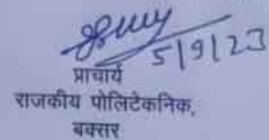 5/9/23
प्राचार्य
राजकीय पोलिटेकनिक,
बक्सर